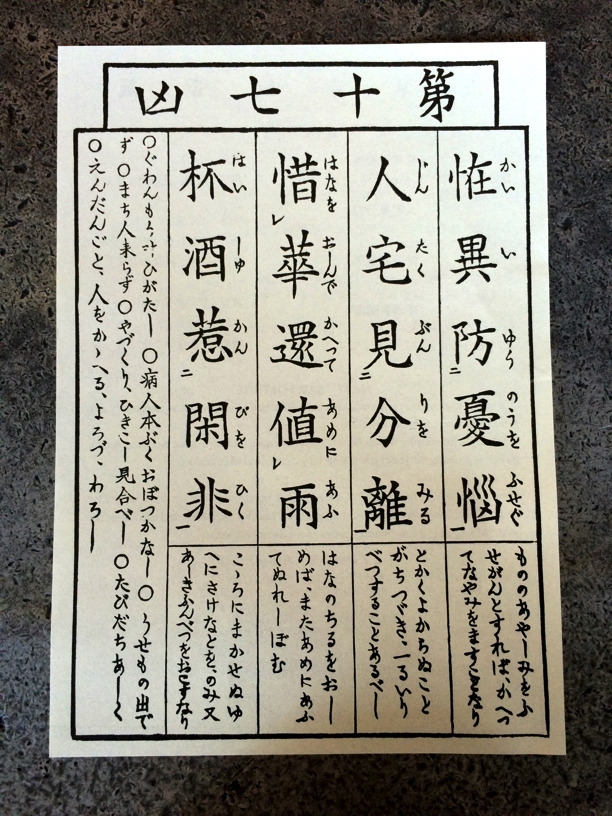 第十七凶
恠異防憂惱
かい い ゆう のうを ふせぐ
二 一
もののあやしみをふ
せがんとすれば、かへつ
てなやみをますことなり
人宅見分離
じん たく ぶん りを みる
二 一
とかくよからぬこと
がちつゞき、一るいり
べつすることあるべし
惜華還値雨
はなを おしんで かへって あめに あふ
レ レ
はなのちるをおし
めば、またあめにあふ
てぬれしぼむ
杯酒惹閑非
はい しゆ かん ぴを ひく
二 一
こゝろにまかせぬゆ
へにさけなどを、のみ又
あしきふんべつをおこすなり
○ぐわんもう叶ひがたし ○病人本ぶくおぼつかなし ○うせもの出で
ず ○まち人来らず ○やづくり、ひきこし見合べし ○たびだちあしく
○えんだんごと、人をかゝへる、よろづ、わろし